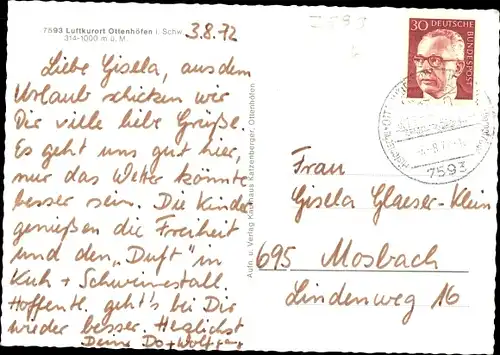 7593 Luftkurort Ottenhöfen i. Schw.
314-1000 m ü. M.
3.8.72
Liebe Gisela, aus dem
Urlaub schicken wir
Dir viele liebe Grüße.
Es geht uns gut hier,
nur das Wetter könnte
besser sein. Die Kinder
genießen die Freiheit
und den „Duft" in
Kuh + Schweinestall.
Hoffentl. geht's bei Dir
wieder besser. Herzlichst
Deine Do + Wolfgang
Aufn. u. Verlag Kaufhaus Katzenberger, Ottenhöfen
30 DEUTSCHE
BUNDESPOST
7593
Frau
Gisela Glaeser-Klein
695 Mosbach
Lindenweg 16